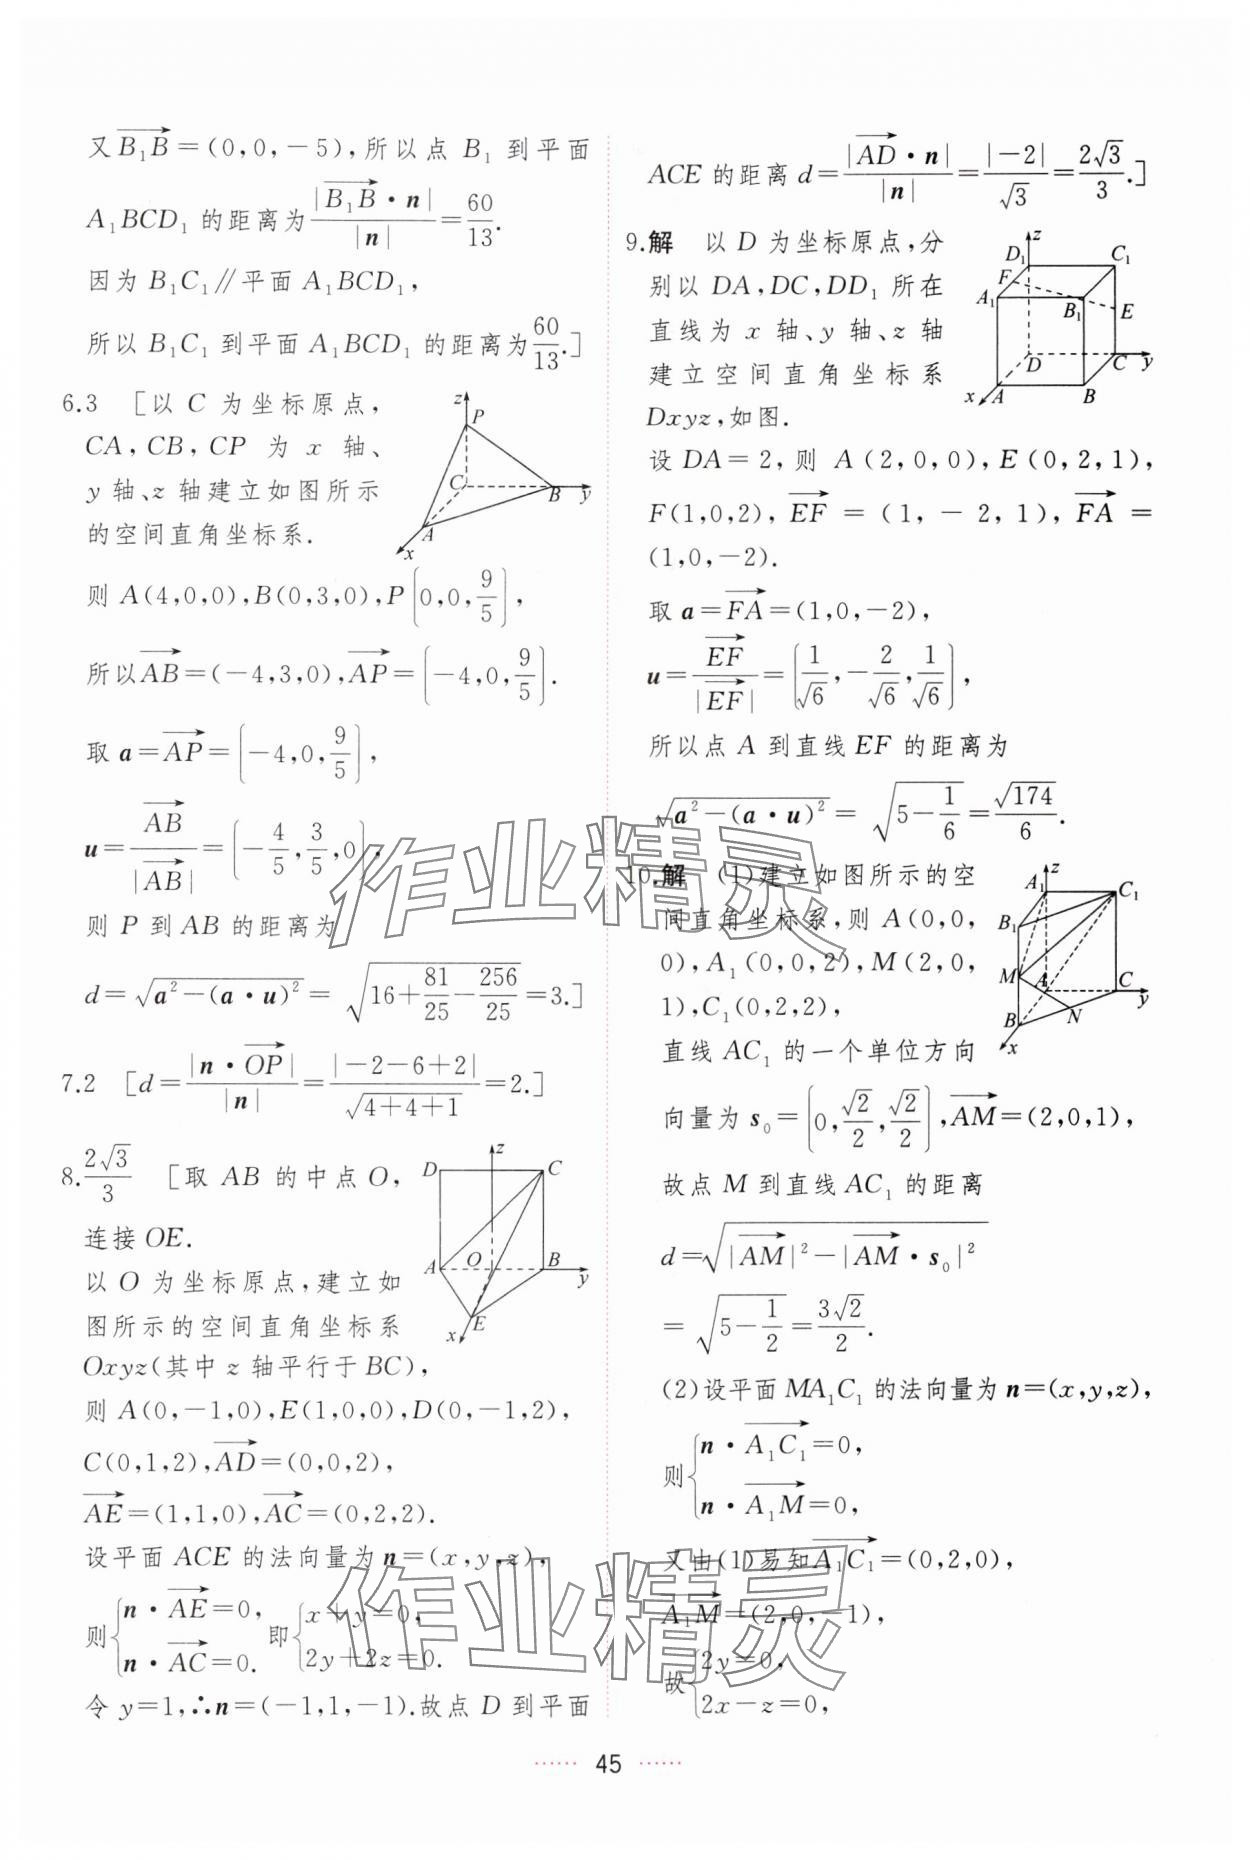 又$\overrightarrow{B_1B}$=(0,0,-5),所以点 $B_1$ 到平面
$A_1BCD_1$ 的距离为$\frac{|\overrightarrow{B_1B}·\boldsymbol{n}|}{|\boldsymbol{n}|}=\frac{60}{13}$.
因为 $B_1C_1$∥平面 $A_1BCD_1$,
所以 $B_1C_1$ 到平面 $A_1BCD_1$ 的距离为$\frac{60}{13}$.]
6.3 [以 C 为坐标原点,
CA,CB,CP 为 x 轴、
y 轴、z 轴建立如图所示
的空间直角坐标系.
z
P
C
B
y
A
x
则 A(4,0,0),B(0,3,0),P$\left(0,0,\frac{9}{5}\right)$,
所以$\overrightarrow{AB}$=(-4,3,0),$\overrightarrow{AP}=\left(-4,0,\frac{9}{5}\right)$.
取 $\boldsymbol{a}=\overrightarrow{AP}=\left(-4,0,\frac{9}{5}\right)$,
$\boldsymbol{u}=\frac{\overrightarrow{AB}}{|\overrightarrow{AB}|}=\left(-\frac{4}{5},\frac{3}{5},0\right)$,
则 P 到 AB 的距离为
$d=\sqrt{\boldsymbol{a}^2-(\boldsymbol{a}·\boldsymbol{u})^2}=\sqrt{16+\frac{81}{25}-\frac{256}{25}}=3$.]
7.2 [$d=\frac{|\boldsymbol{n}·\overrightarrow{OP}|}{|\boldsymbol{n}|}=\frac{|-2-6+2|}{\sqrt{4+4+1}}=2$.]
8.$\frac{2\sqrt{3}}{3}$ [取 AB 的中点 O,
连接 OE.
以 O 为坐标原点,建立如
图所示的空间直角坐标系
Oxyz(其中 z 轴平行于 BC),
z
D
C
A
O
B
y
E
x
则 A(0,-1,0),E(1,0,0),D(0,-1,2),
C(0,1,2),$\overrightarrow{AD}$=(0,0,2),
$\overrightarrow{AE}$=(1,1,0),$\overrightarrow{AC}$=(0,2,2).
设平面 ACE 的法向量为 $\boldsymbol{n}$=(x,y,z),
则$\begin{cases}\boldsymbol{n}·\overrightarrow{AE}=0,\\\boldsymbol{n}·\overrightarrow{AC}=0.\end{cases}$即$\begin{cases}x+y=0,\\2y+2z=0.\end{cases}$
令 y=1,∴$\boldsymbol{n}$=(-1,1,-1).故点 D 到平面
ACE 的距离 $d=\frac{|\overrightarrow{AD}·\boldsymbol{n}|}{|\boldsymbol{n}|}=\frac{|-2|}{\sqrt{3}}=\frac{2\sqrt{3}}{3}$.]
9.解 以 D 为坐标原点,分
别以 DA,DC,$DD_1$ 所在
直线为 x 轴、y 轴、z 轴
建立空间直角坐标系
Dxyz,如图.
z
$D_1$
$C_1$
F
$A_1$
$B_1$
E
D
C
y
x
A
B
设 DA=2,则 A(2,0,0),E(0,2,1),
F(1,0,2),$\overrightarrow{EF}$=(1,-2,1),$\overrightarrow{FA}$=
(1,0,-2).
取 $\boldsymbol{a}=\overrightarrow{FA}$=(1,0,-2),
$\boldsymbol{u}=\frac{\overrightarrow{EF}}{|\overrightarrow{EF}|}=\left(\frac{1}{\sqrt{6}},-\frac{2}{\sqrt{6}},\frac{1}{\sqrt{6}}\right)$,
所以点 A 到直线 EF 的距离为
$\sqrt{\boldsymbol{a}^2-(\boldsymbol{a}·\boldsymbol{u})^2}=\sqrt{5-\frac{1}{6}}=\frac{\sqrt{174}}{6}$.
10.解 (1)建立如图所示的空
间直角坐标系,则 A(0,0,
0),$A_1$(0,0,2),M(2,0,
1),$C_1$(0,2,2),
z
$A_1$
$C_1$
$B_1$
M
A
C
y
B
N
x
直线 $AC_1$ 的一个单位方向
向量为 $\boldsymbol{s}_0=\left(0,\frac{\sqrt{2}}{2},\frac{\sqrt{2}}{2}\right)$,$\overrightarrow{AM}$=(2,0,1),
故点 M 到直线 $AC_1$ 的距离
$d=\sqrt{|\overrightarrow{AM}|^2-|\overrightarrow{AM}·\boldsymbol{s}_0|^2}$
$=\sqrt{5-\frac{1}{2}}=\frac{3\sqrt{2}}{2}$.
(2)设平面 $MA_1C_1$ 的法向量为 $\boldsymbol{n}$=(x,y,z),
则$\begin{cases}\boldsymbol{n}·\overrightarrow{A_1C_1}=0,\\\boldsymbol{n}·\overrightarrow{A_1M}=0,\end{cases}$
又由(1)易知$\overrightarrow{A_1C_1}$=(0,2,0),
$\overrightarrow{A_1M}$=(2,0,-1),
故$\begin{cases}2y=0,\\2x-z=0,\end{cases}$
45
作业精灵
作业精灵